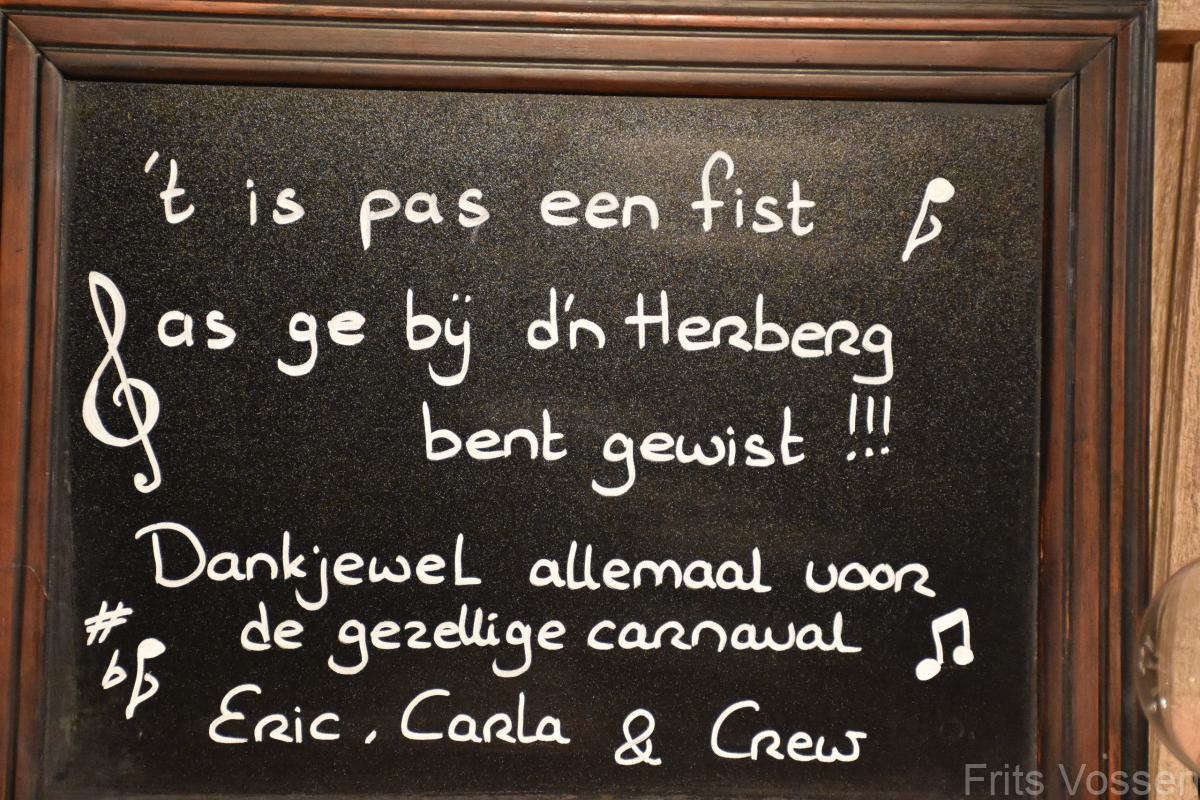 't is pas een fist
as ge bij d'n Herberg
bent gewist !!!
Dankjewel allemaal voor
de gezellige carnaval
Eric, Carla & Crew
Frits Vossen